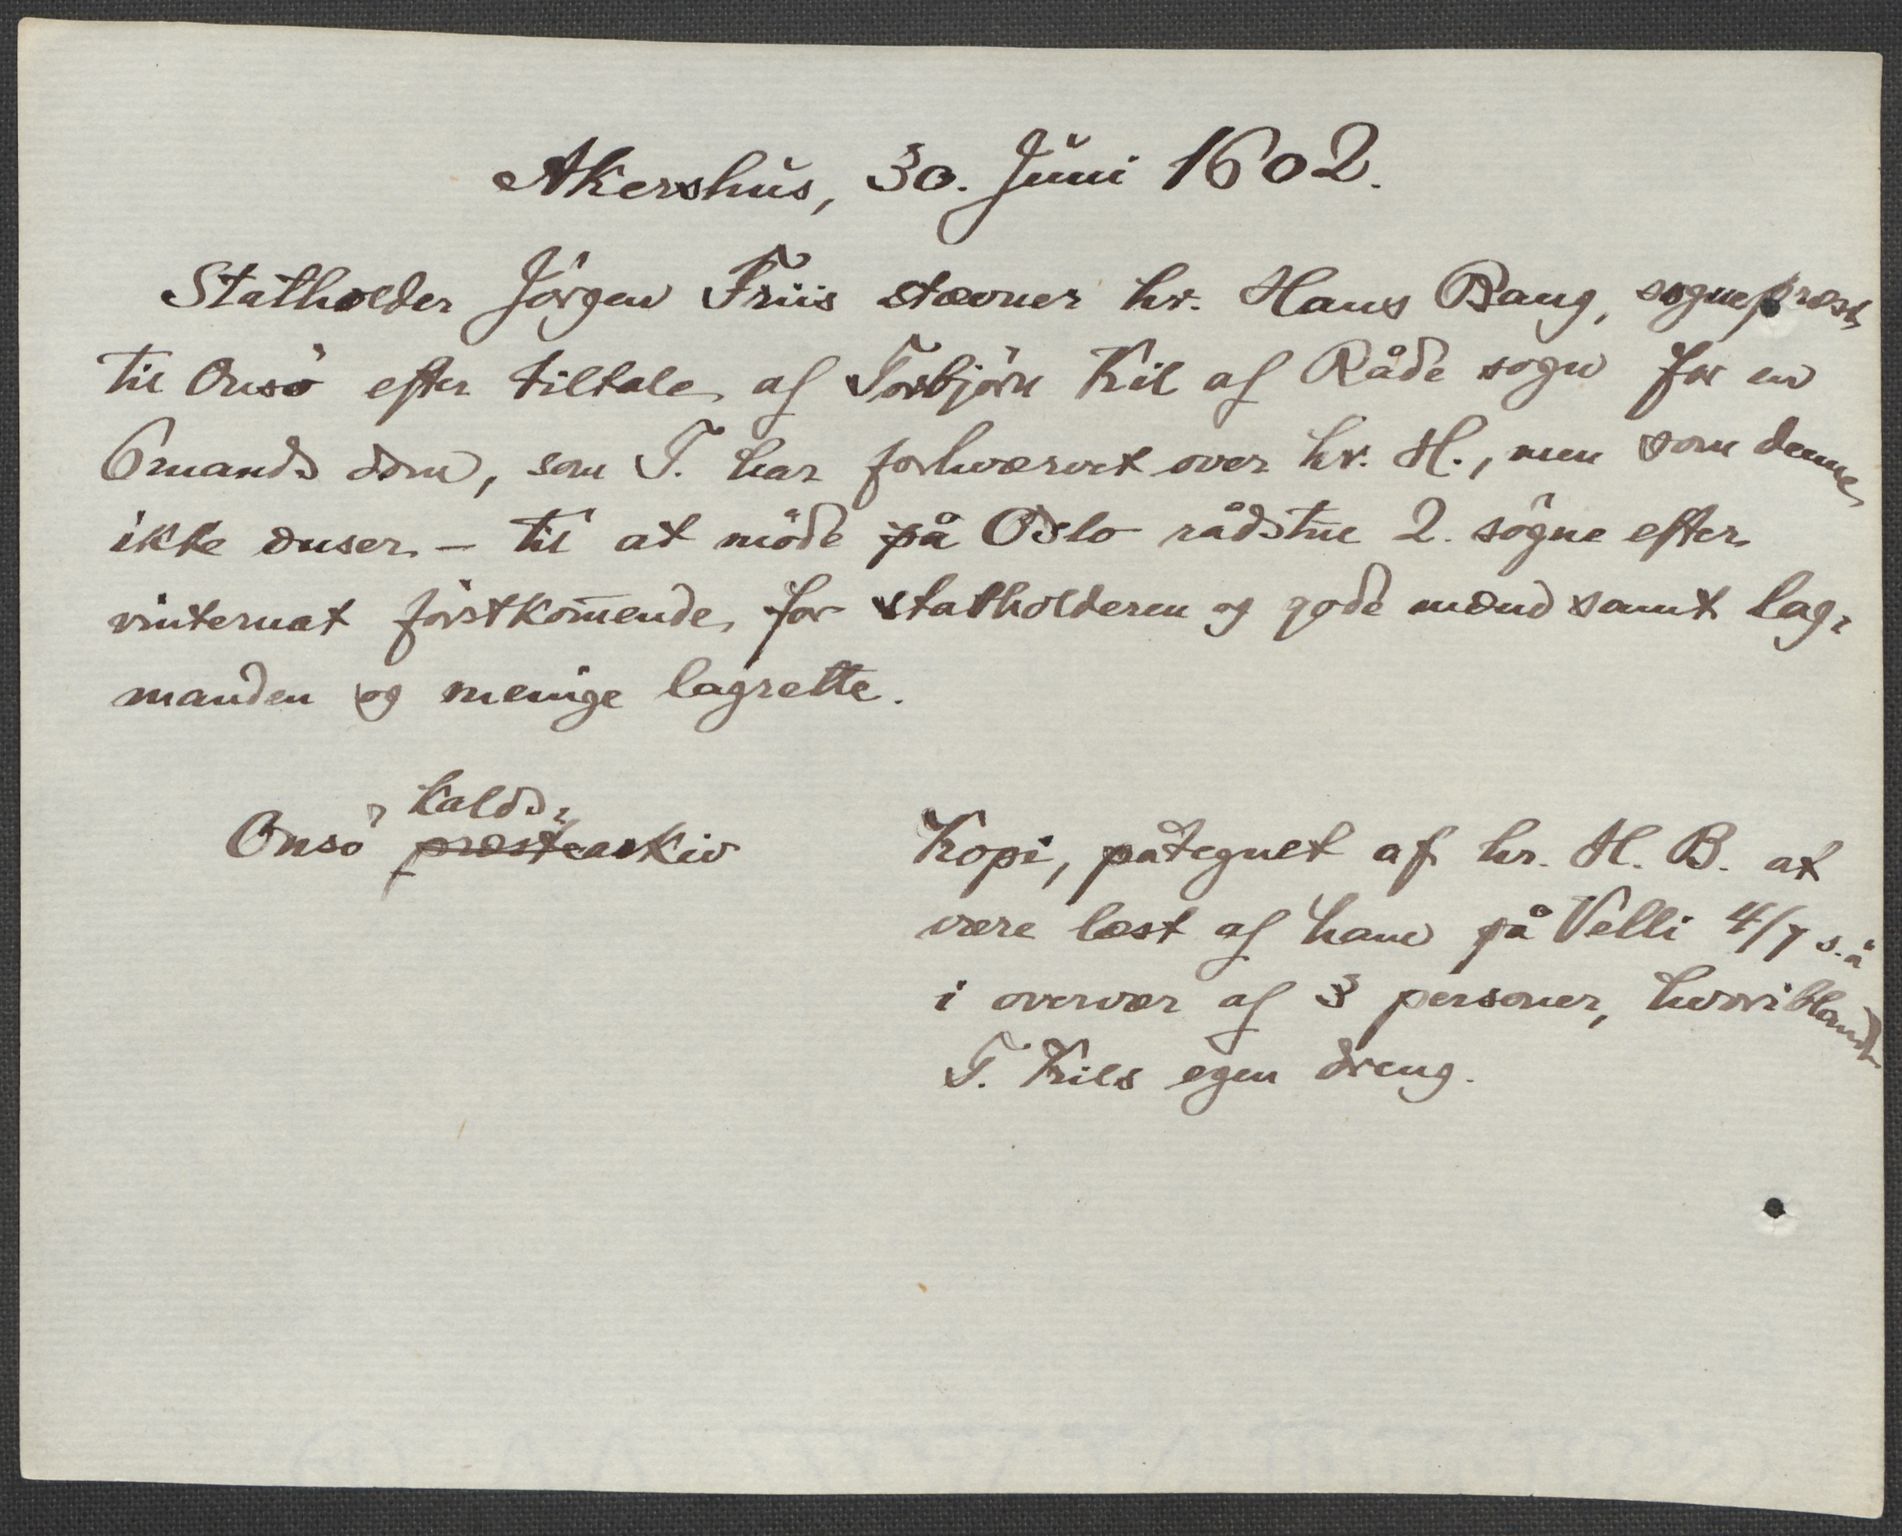 Akershus, 30. Juni 1602.
Statholder Jörgen Friis stævner hr. Hans Bang, sogneprest
til Onsö efter tiltale af Torbjörn Kil af Råde sogn for en
6mands dom, som T. har forhværvet over hr. H., men som denne
ikke ænser – til at möde på Oslo rådstue 2. sögne efter
vinternat förstkom̄ende for statholderen og gode mænd samt lag-
manden og menige lagrette.
Onsö kalds- ~~præste~~arkiv
Kopi, påtegnet af hr. H. B. at
være læst af ham på Velli 4/7 s.å
i overvær af 3 personer, hvoriblandt
T. Kils egen dreng.